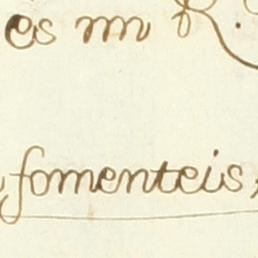 es mi R
fomenteis,